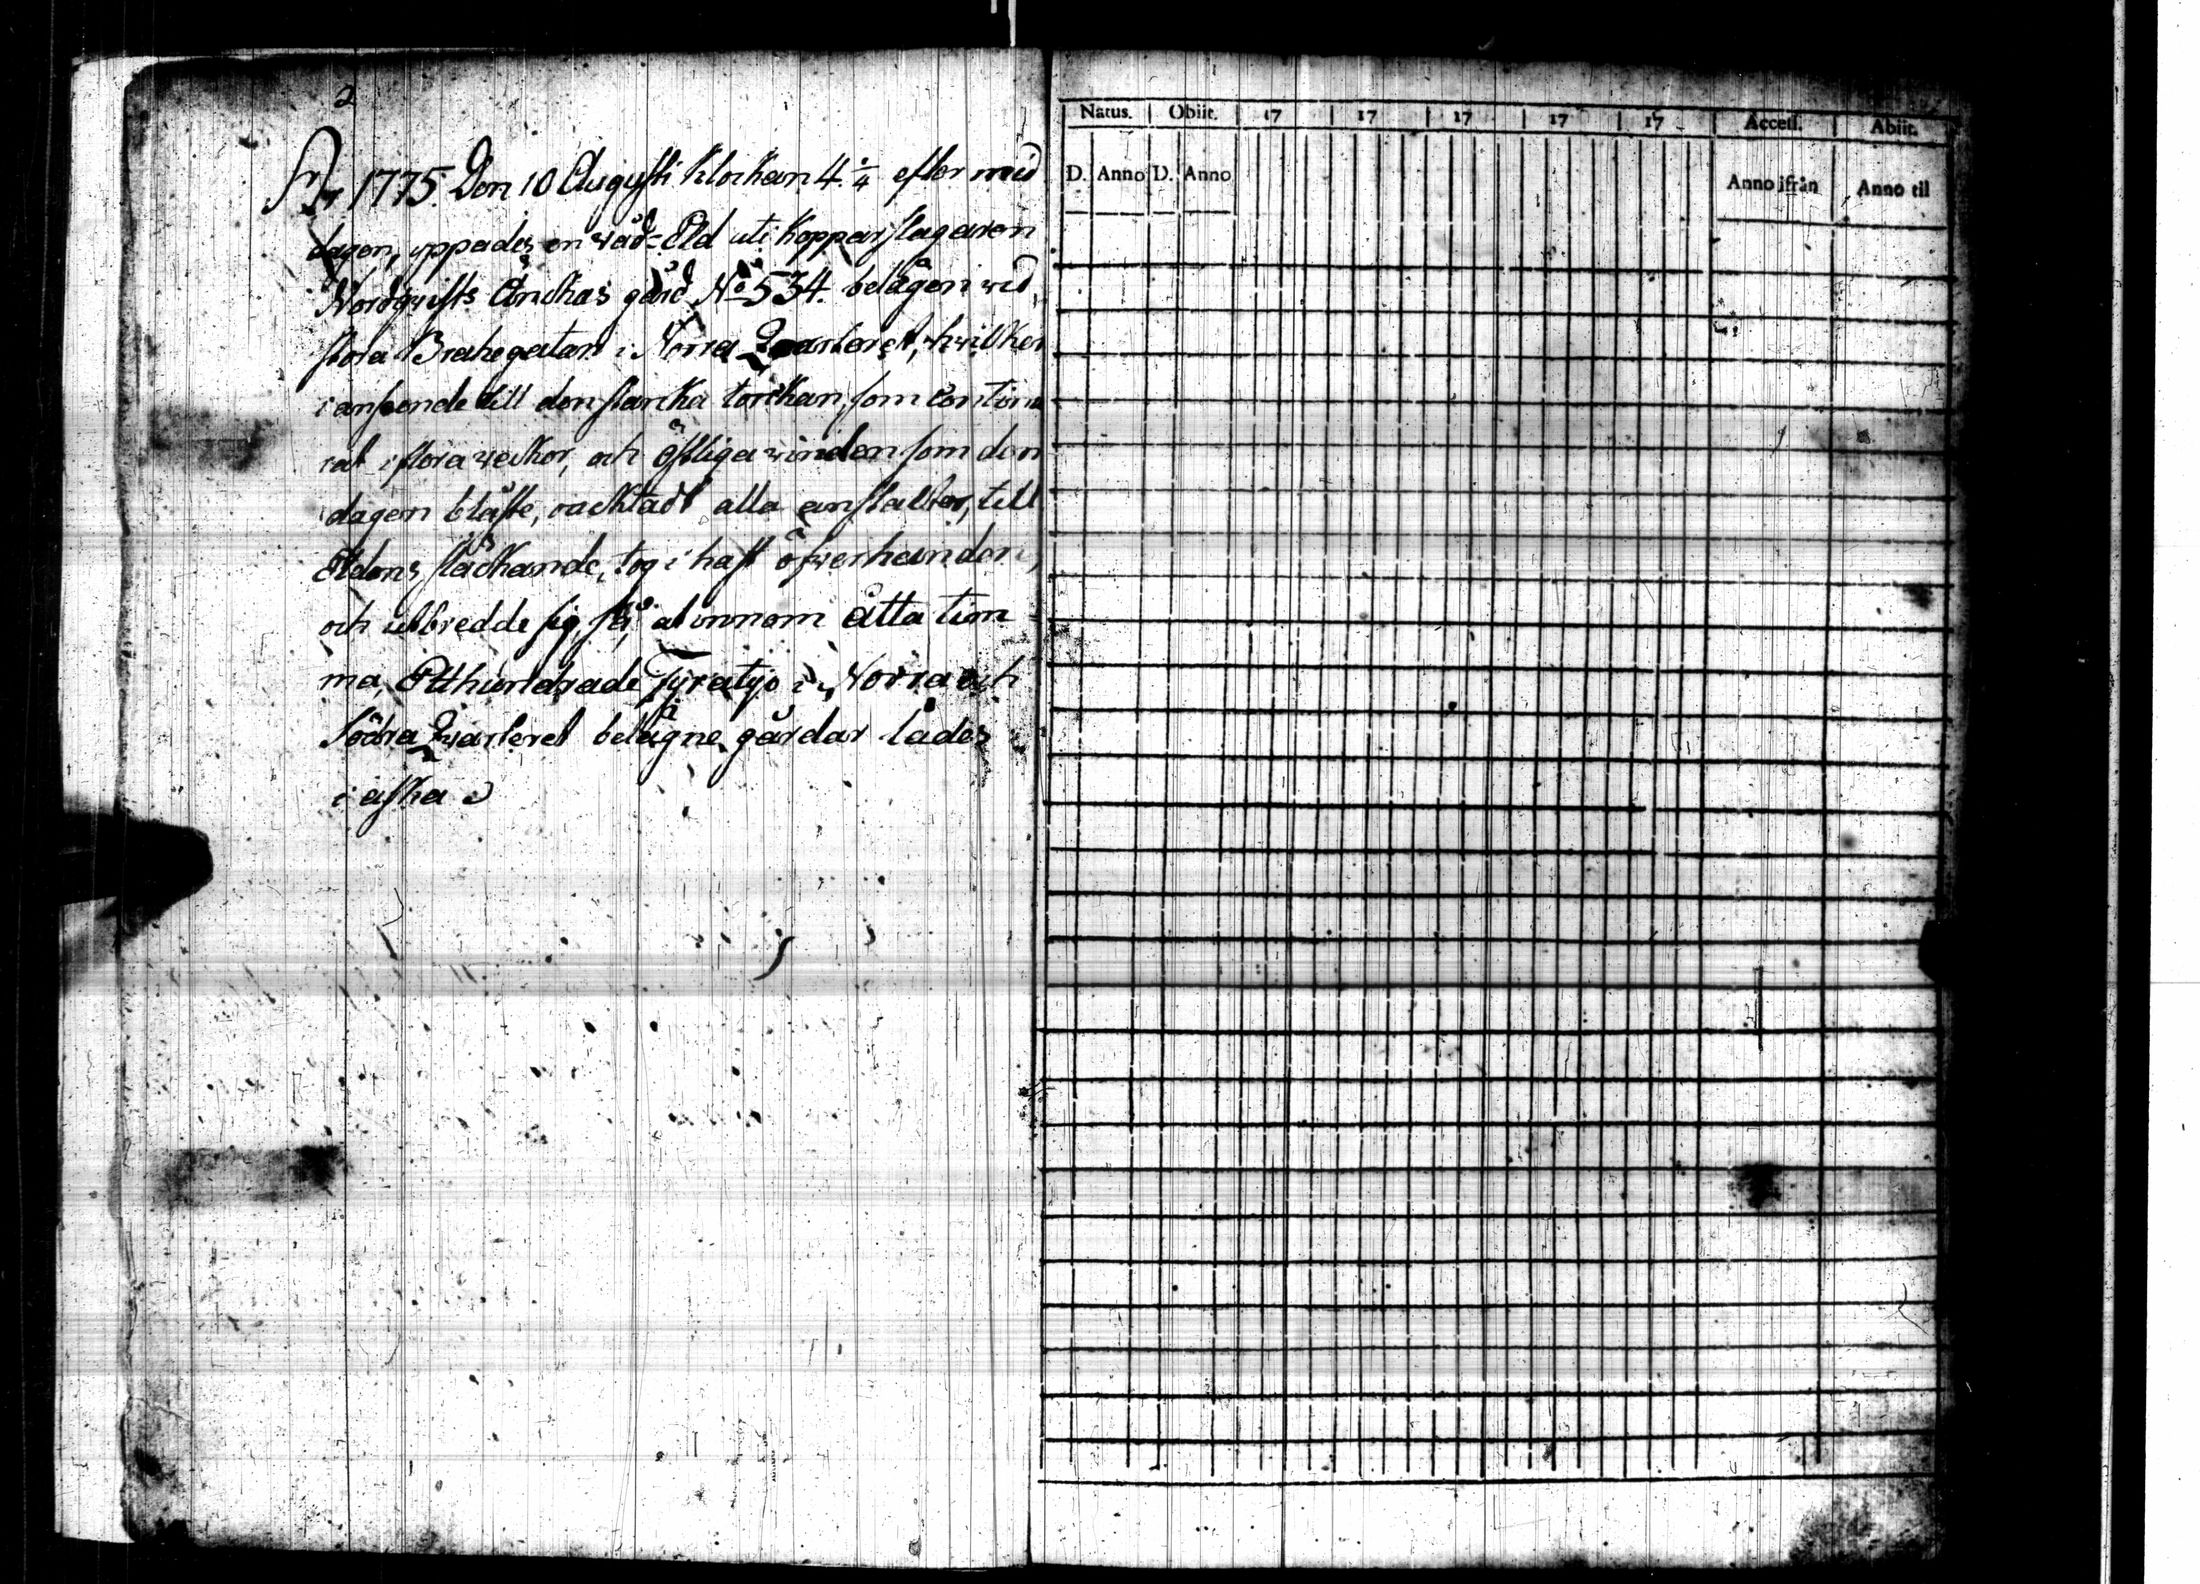 2
År 1775. Den 10 Augusti klockan 4 1/4 efter mid
dagen, yppades en våd=Eld uti kopparslagaren
Nordqvists Enckas gård No 534. belägen wid
stora Brahegatan i Norra Quarteret, hwilken
i anseende till den starcka torckan, som continu
rat i flera weckor, och östliga winden som den
dagen blåste, oacktadt alla anstalter, till
Eldens släckande, tog i hast öfwerhanden,
och utbredde sig så, at innom åtta tim
ma, Etthundrade fyratijo i Norra och
Södra Quarteret belägne gårdar lades
i aska
Natus. Obiit. 17 17 17 17 17 Accessit. Abiit.
D. Anno D. Anno Anno ifrån Anno til